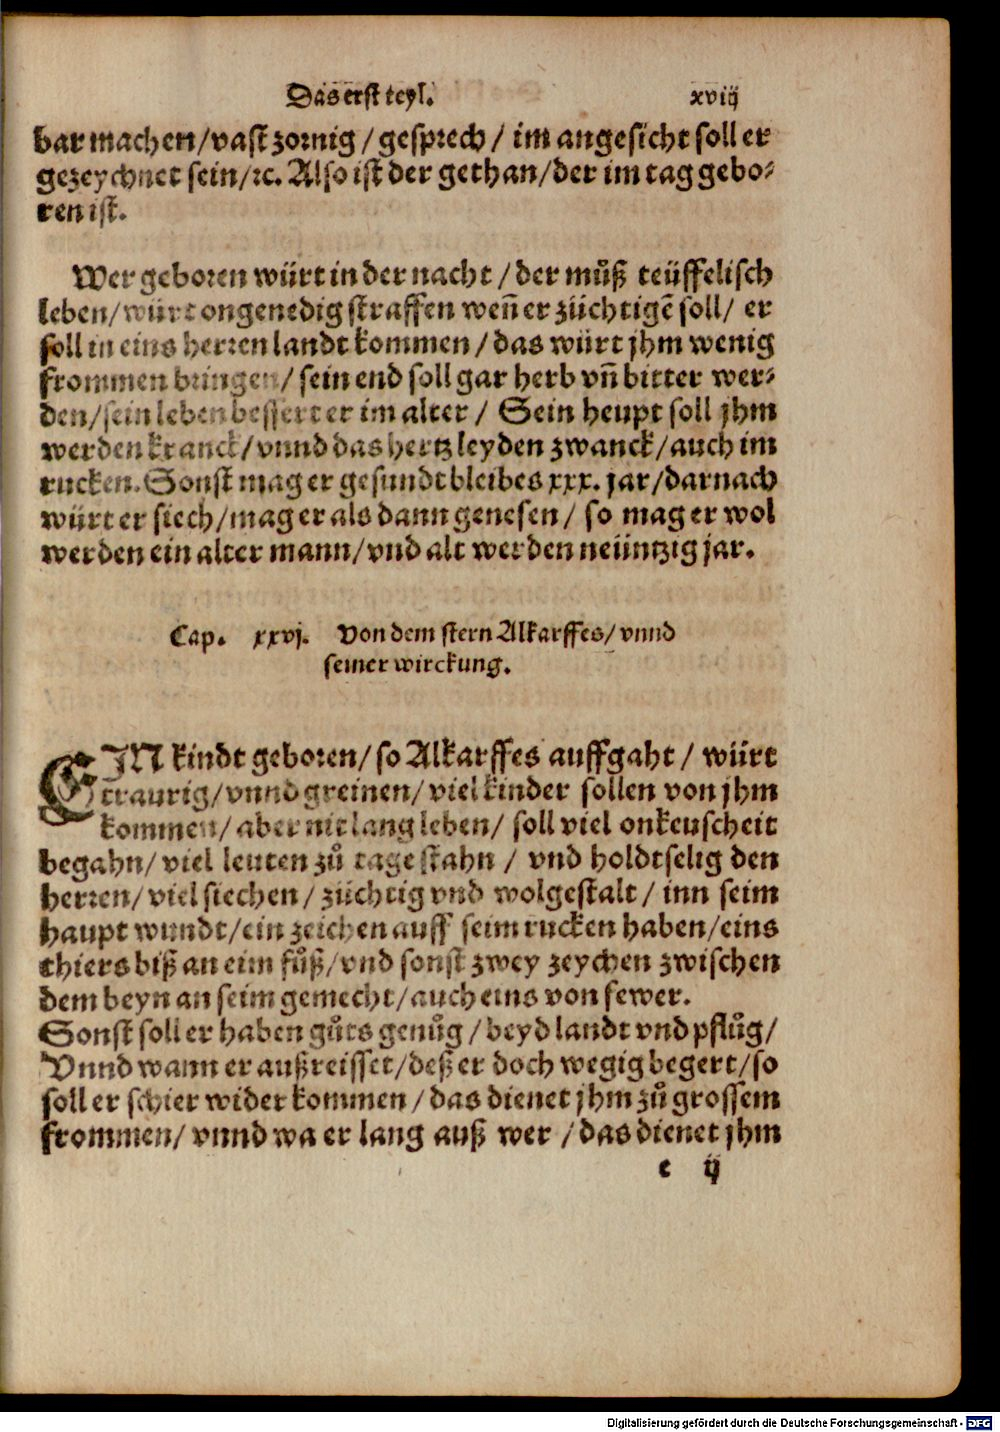 Das erst teyl. xviij
bar machen/vast zornig/gesprech/ im angesicht soll er
gezeychnet sein/ꝛc. Also ist der gethan/der im tag gebo⸗
ren ist.
Wer geboren würt in der nacht/der můß teüffelisch
leben/würt ongenedig straffen wen̄ er züchtigē soll/ er
soll in eins herren landt kommen/das würt jhm wenig
frommen bringen/sein end soll gar herb vn̄ bitter wer⸗
den/sein leben bessert er im alter/ Sein heupt soll jhm
werden kranck/vnnd das hertz leyden zwanck/auch im
rucken. Sonst mag er gesundt bleibe͂ xxx. jar/darnach
würt er siech/mag er als dann genesen/ so mag er wol
werden ein alter mann/vnd alt werden neüntzig jar.
Cap. xxvj. Von dem stern Alkarffes/vnnd
seiner wirckung.
EIN kindt geboren/so Alkarffes auffgaht/ würt
traurig/vnnd greinen/viel kinder sollen von jhm
kommen/aber nit lang leben/ soll viel onkeuscheit
begahn/viel leuten zů tage stahn/ vnd holdtselig den
herren/viel siechen/züchtig vnd wolgestalt/inn seim
haupt wundt/ein zeichen auff seim rucken haben/eins
thiers biß an eim fůß/vnd sonst zwey zeychen zwischen
dem beyn an seim gemecht/auch eins von fewer.
Sonst soll er haben gůts genůg/beyd landt vnd pflůg/
Vnnd wann er außreisset/deß er doch wegig begert/so
soll er schier wider kommen/das dienet jhm zů grossem
frommen/vnnd wa er lang auß wer/das dienet jhm
c ij
Digitalisierung gefördert durch die Deutsche Forschungsgemeinschaft - DFG